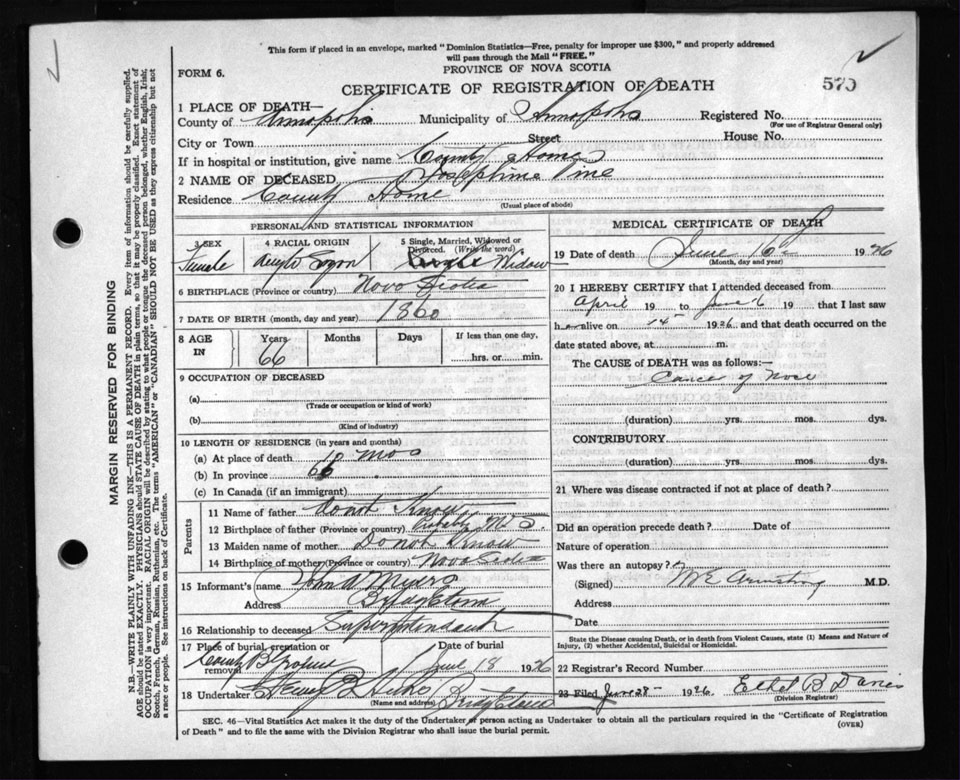 This form if placed in an envelope, marked "Dominion Statistics—Free, penalty for improper use $300," and properly addressed
will pass through the Mail "FREE."
PROVINCE OF NOVA SCOTIA
FORM 6.
CERTIFICATE OF REGISTRATION OF DEATH
570
1 PLACE OF DEATH—
County of Annapolis Municipality of Annapolis Registered No.
(For use of Registrar General only)
City or Town Street House No.
If in hospital or institution, give name County Home
2 NAME OF DECEASED Josephine Vine
Residence County Home
(Usual place of abode)
PERSONAL AND STATISTICAL INFORMATION
3 SEX
Female
4 RACIAL ORIGIN
Anglo Saxon
5 Single, Married, Widowed or
Divorced. (Write the word.)
Widow
6 BIRTHPLACE (Province or country) Nova Scotia
7 DATE OF BIRTH (month, day and year) 1860
8 AGE IN
Years
66
Months
Days
If less than one day,
hrs. or min.
9 OCCUPATION OF DECEASED
(a)
(Trade or occupation or kind of work)
(b)
(Kind of industry)
10 LENGTH OF RESIDENCE (in years and months)
(a) At place of death 10 mos
(b) In province 66
(c) In Canada (if an immigrant)
Parents
11 Name of father donot Know
12 Birthplace of father (Province or country) Probably N.S.
13 Maiden name of mother Do not Know
14 Birthplace of mother (Province or country) Nova Scotia
15 Informant's name John A Myers
Address Bridgetown
16 Relationship to deceased Superintendant
17 Place of burial, cremation or
removal
County B Grounds
Date of burial
June 18 1926
18 Undertaker
(Name and address) Bridgetown
MEDICAL CERTIFICATE OF DEATH
19 Date of death June 16 1926
(Month, day and year)
20 I HEREBY CERTIFY that I attended deceased from
April 19 to June 16 19 that I last saw
her alive on 14 1926 and that death occurred on the
date stated above, at m.
The CAUSE of DEATH was as follows:—
Cancer of Nose
(duration) yrs. mos. dys.
CONTRIBUTORY
(duration) yrs. mos. dys.
21 Where was disease contracted if not at place of death?
Did an operation precede death? Date of
Nature of operation
Was there an autopsy?
(Signed) M E Armstrong M.D.
Address
Date
State the Disease causing Death, or in death from Violent Causes, state (1) Means and Nature of
Injury, (2) whether Accidental, Suicidal or Homicidal.
22 Registrar's Record Number
23 Filed June 28 1926 Ethel B Davies
(Division Registrar)
SEC. 46—Vital Statistics Act makes it the duty of the Undertaker or person acting as Undertaker to obtain all the particulars required in the "Certificate of Registration
of Death" and to file the same with the Division Registrar who shall issue the burial permit.
(OVER)
MARGIN RESERVED FOR BINDING
N.B.—WRITE PLAINLY WITH UNFADING INK—THIS IS A PERMANENT RECORD. Every item of information should be carefully supplied.
AGE should be stated EXACTLY. PHYSICIANS should STATE CAUSE OF DEATH in plain terms, so that it may be properly classified. Exact statement of
OCCUPATION is very important. RACIAL ORIGIN will be described by stating to what people or tongue the deceased person belonged, whether English, Irish,
Scotch, French, German, Russian, Ruthenian, etc. The terms "AMERICAN" or "CANADIAN" SHOULD NOT BE USED as they express citizenship but not
a race or people. See instructions on back of Certificate.